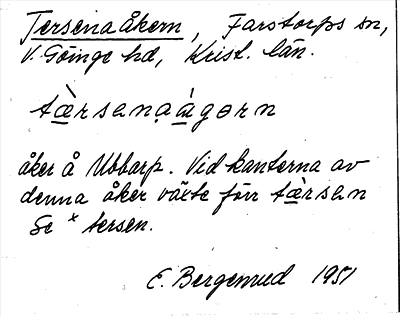 Tersenaåkern, Farstorps sn,
V. Göinge hd, Krist. län.
tæ̀rsenaágərn
åker å Ubbarp. Vid kanterna av
denna åker växte förr tæ̀rsen
Se * tersen.
E. Bergerud 1951